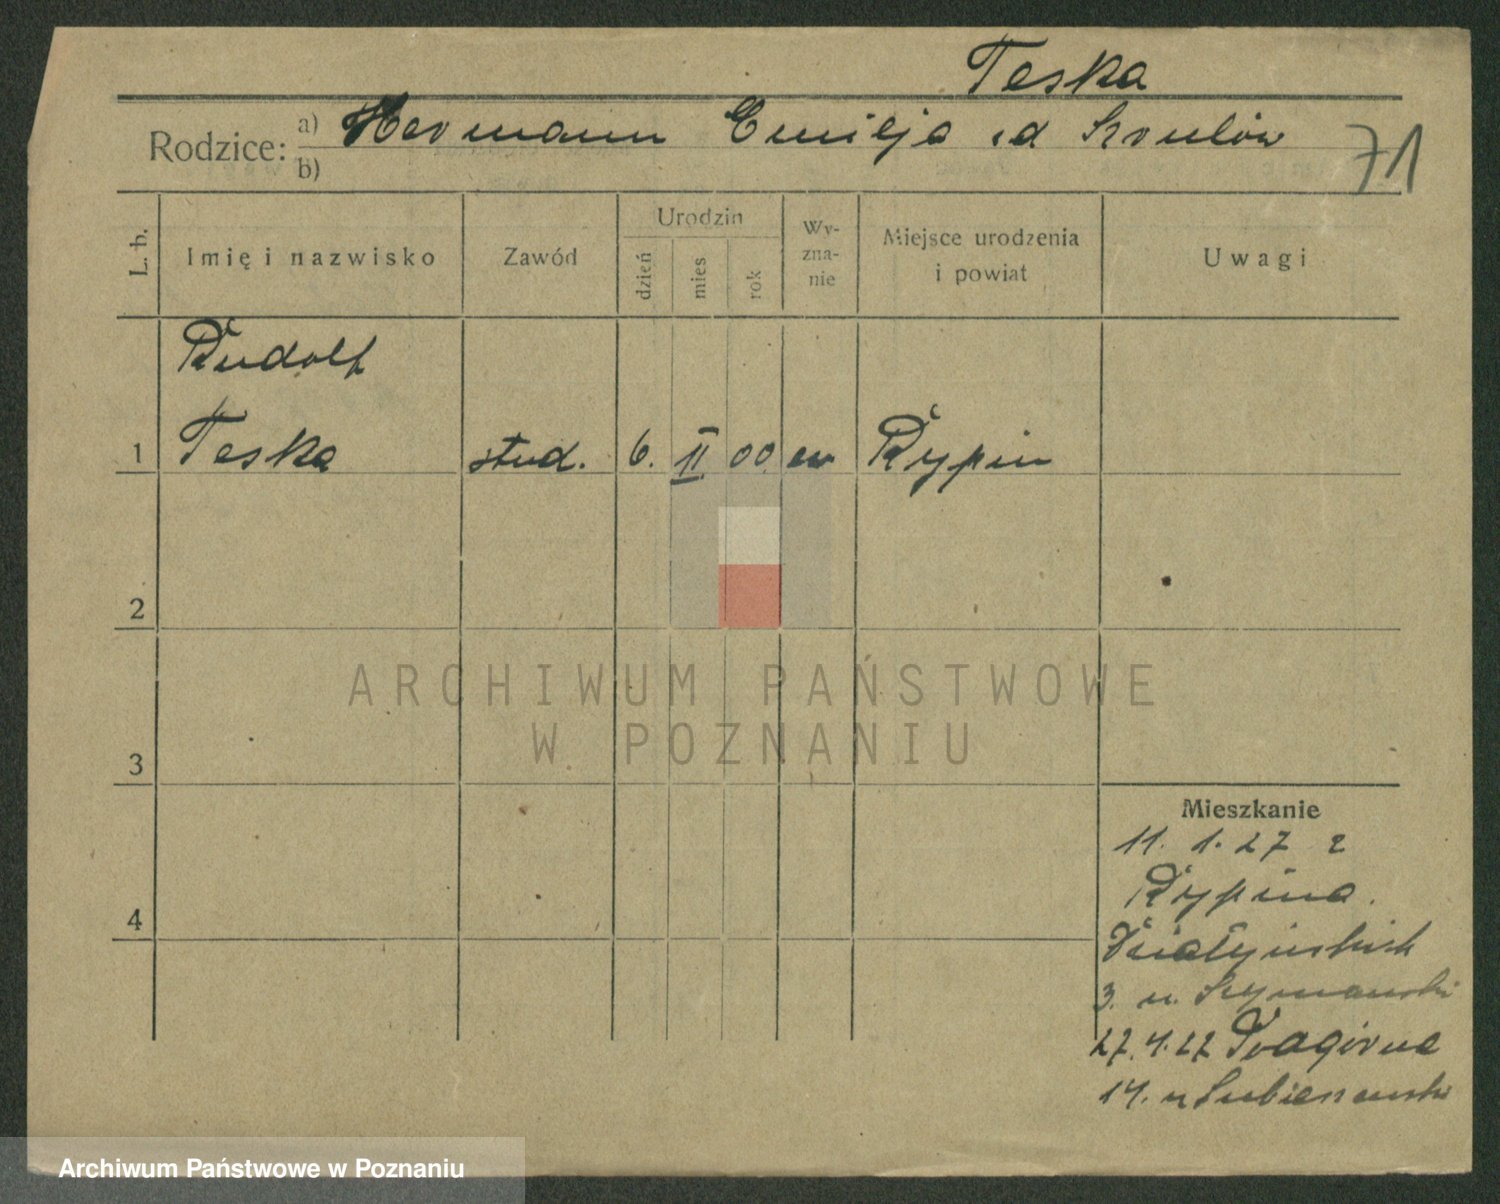 Teska
Rodzice: a) Hermann Emilja zd Szulców
b)
71
L. b. Imię i nazwisko Zawód Urodzin dzień mies rok Wy-zna-nie Miejsce urodzenia i powiat Uwagi
Rudolf
1 Teska stud. 6. II 00 ew Rypin
2
3
4
ARCHIWUM PAŃSTWOWE
W POZNANIU
Mieszkanie
11. 1. 27 z
Rypina.
3. u. Szymański
27. 4. 27 Podgórna
14. u
Archiwum Państwowe w Poznaniu